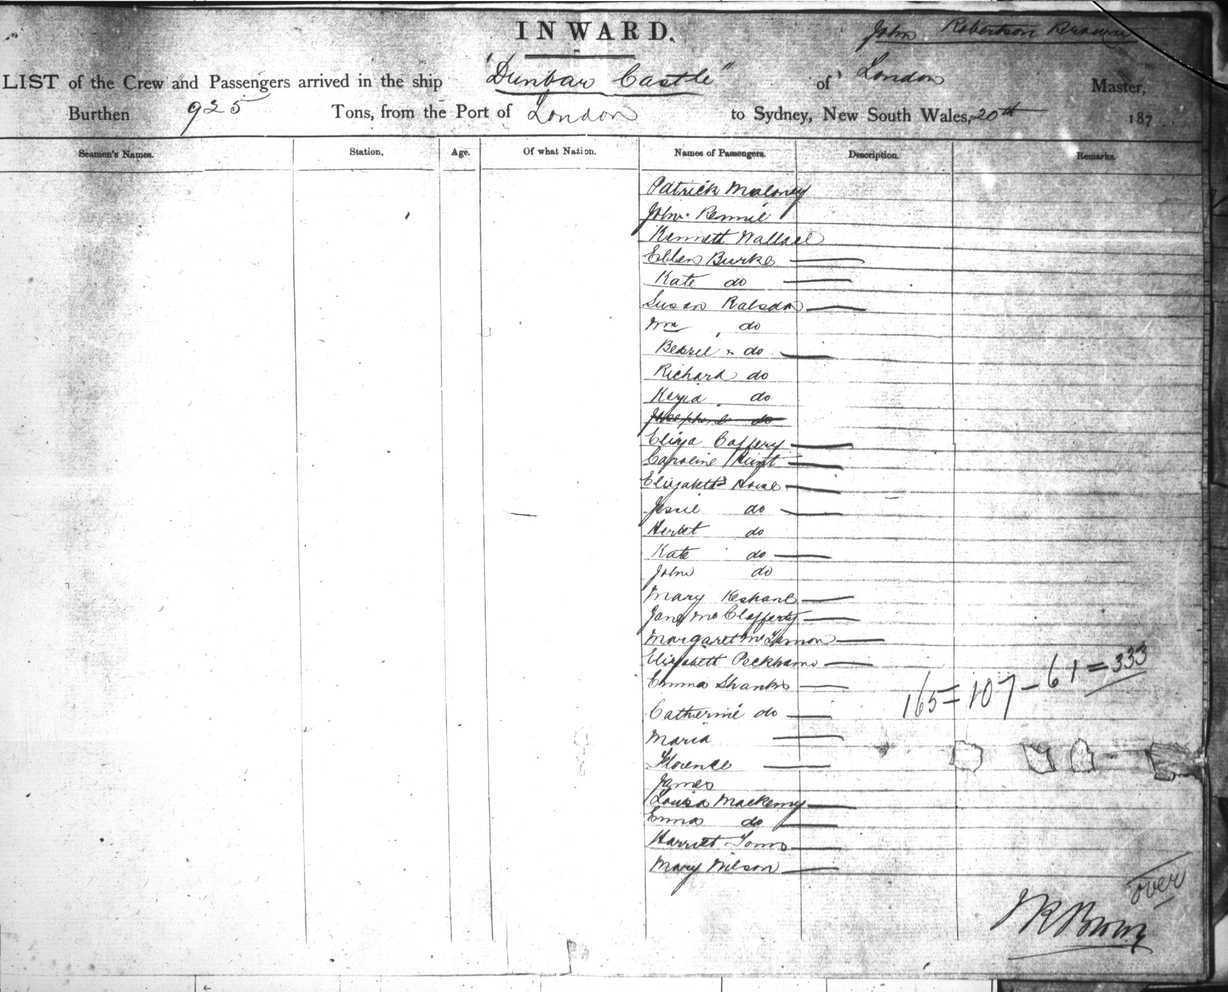 INWARD.
John Robertson Brown
LIST of the Crew and Passengers arrived in the ship "Dunbar Castle" of London Master,
Burthen 925 Tons, from the Port of London to Sydney, New South Wales, 20th 187
Seamen's Names. Station. Age. Of what Nation. Names of Passengers. Description. Remarks.
Patrick Maloney
John Rennie
Kenneth Wallace
Ellen Burke
Kate do
Susan Ralsdon
Wm do
Bessie do
Richard do
do
Josephine do
Eliza Caffery
Caroline
Elizabeth
Jessie do
do
Kate do
John do
Mary
Jane McClafferty
Margaret
Elizabeth Peckham
Emma Shanks
Catherine do
Maria
165=107-61=333
Florence
James
Louisa Mackenny
Emma do
Harriet Toms
Mary Wilson
over
J R Brown